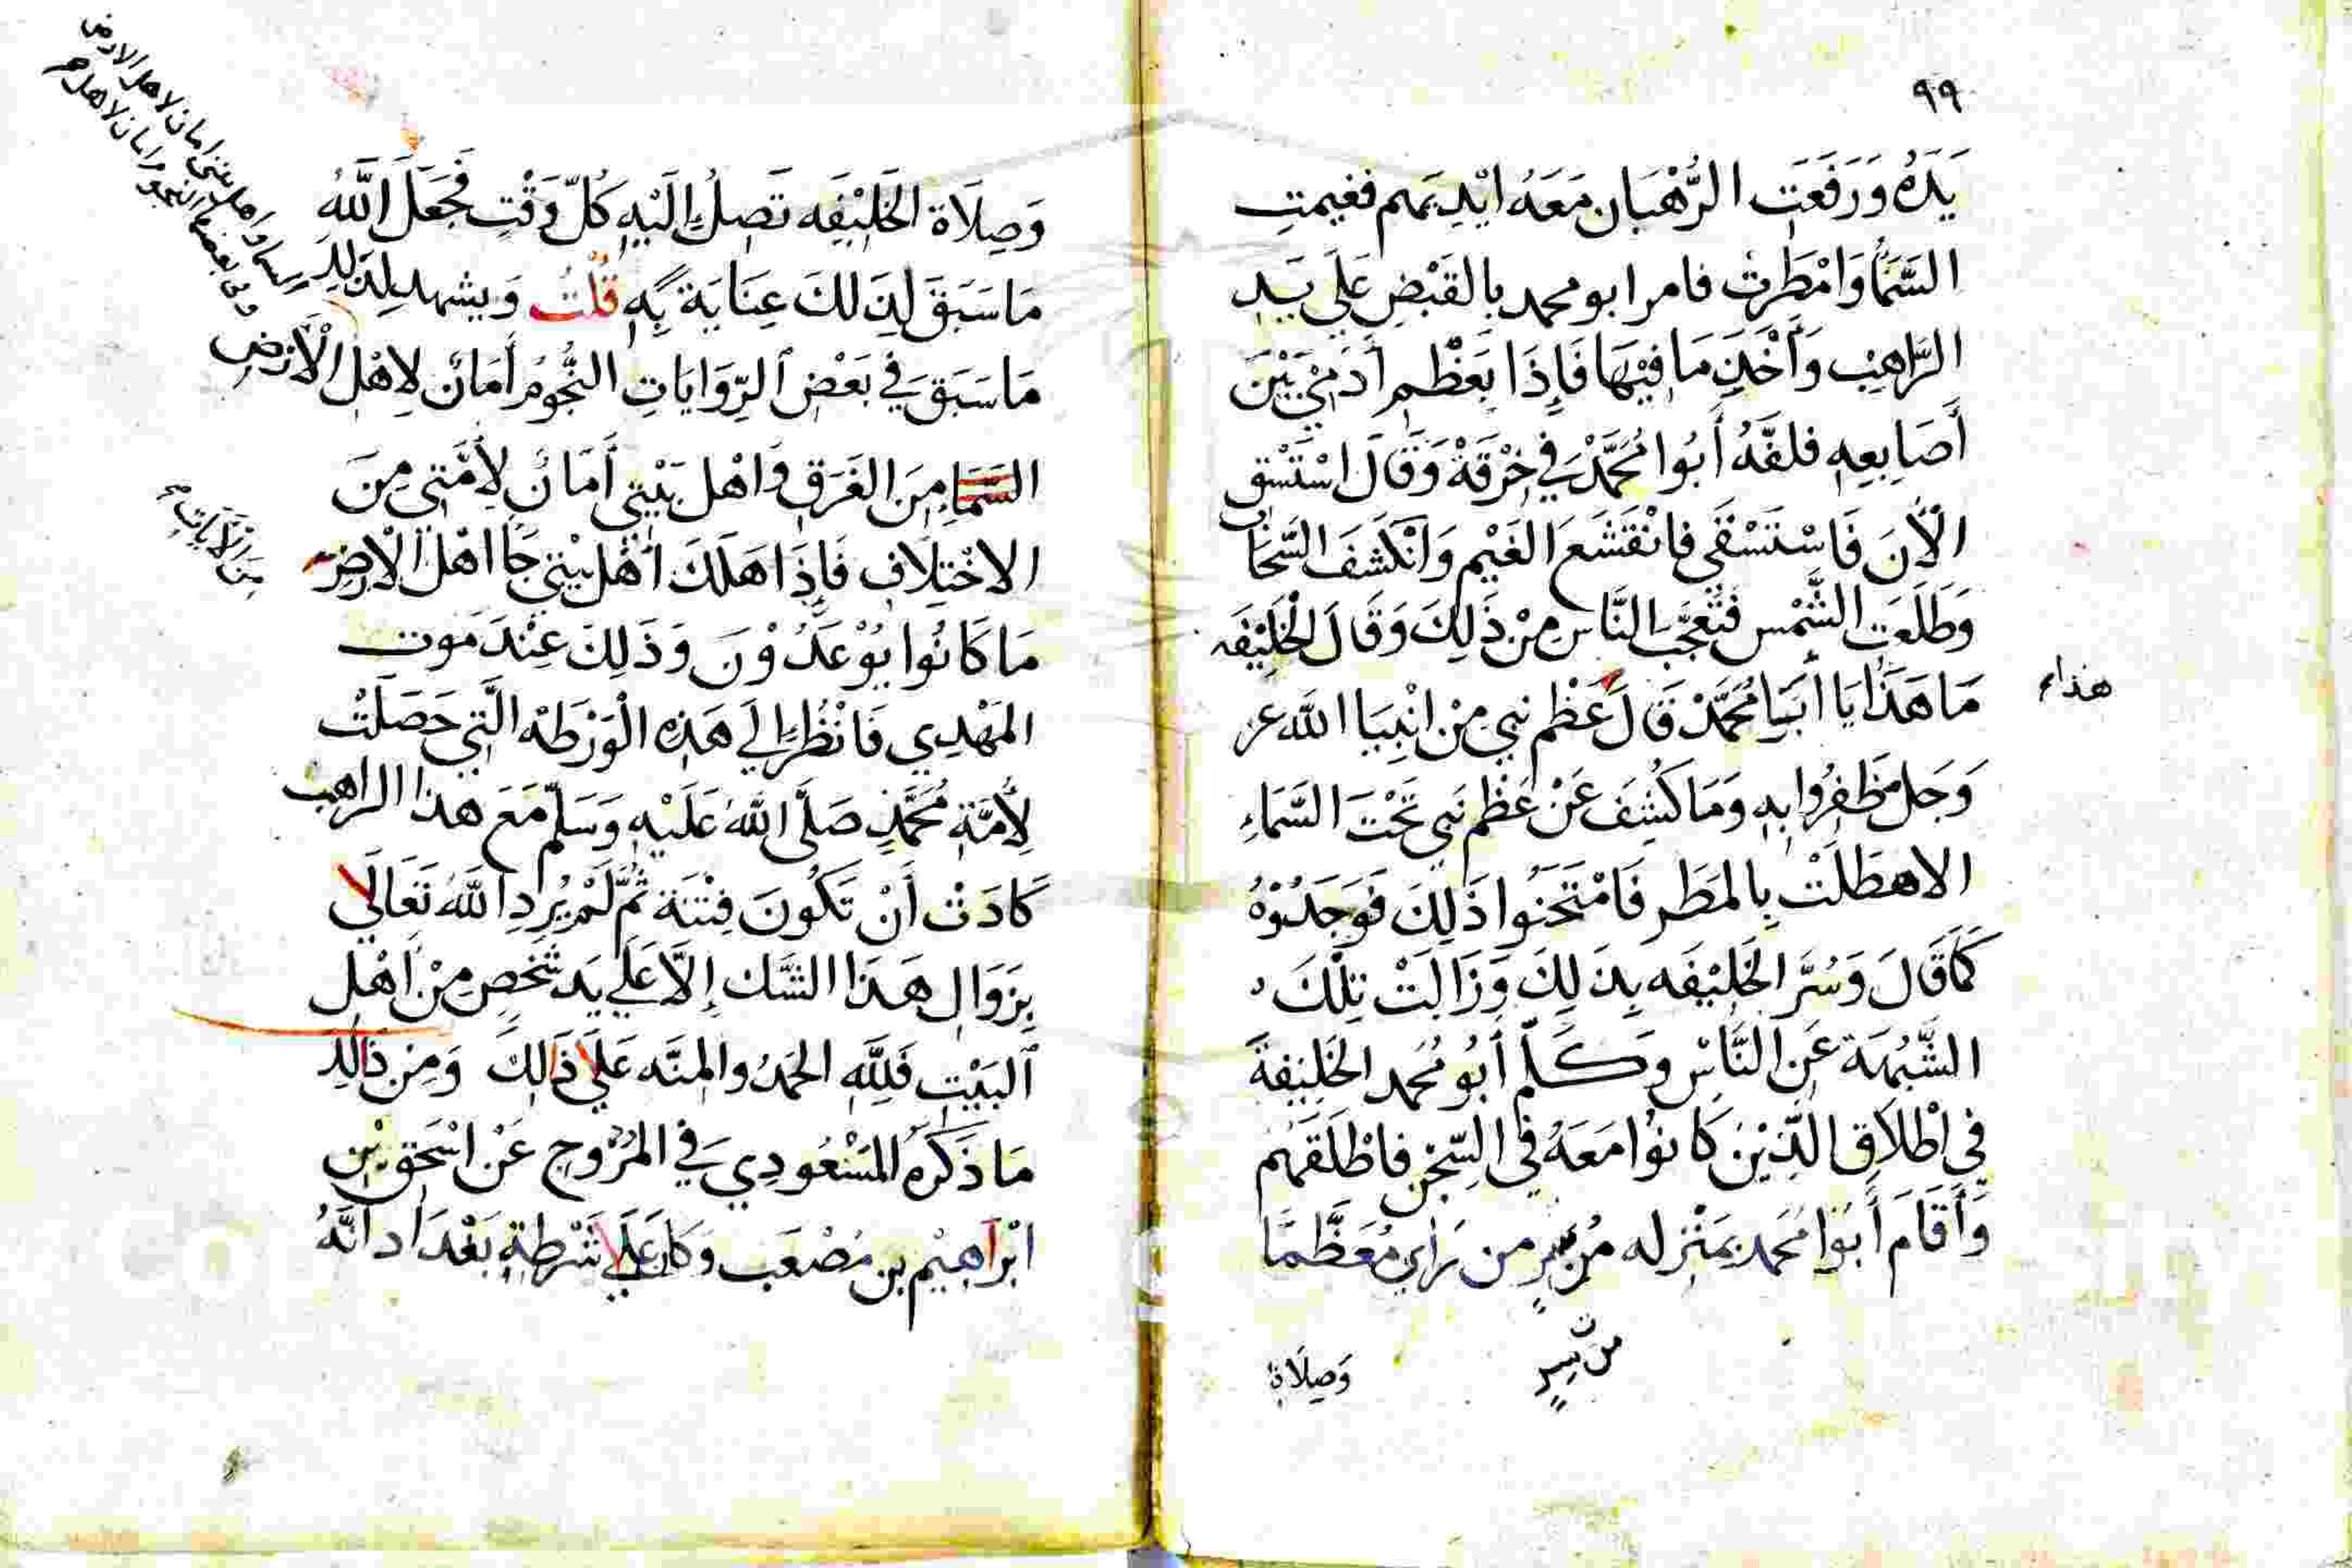 ٩٩
يَدَهُ وَرَفَعَتِ الرُّهْبَان مَعَهُ ايْدِيَهم فغيمتِ
السَّمَاُ وَامْطَرتْ فامر ابو محمد بالقَبْضِ عَلَي يَدِ
الرَّاهِبِ وَأَخْذِ مَا فِيْهَا فَإِذَا بِعَظْمِ أَدَمِيٍّ بَيْنَ
أَصَابِعِهِ فلفَّهُ أَبُوا مُحَمَّدْ فِي خِرْقَةْ وَقَالَ اسْتَسْقِ
الْآنَ فَاسْتَسْقَي فانْقَشَعَ الغَيْم وَانْكَشَفَ السَّحَابُ
وَطَلَعَتِ الشَّمْس فَتَعَجَّبَ النَّاس مِنْ ذَلِكَ وَقَالَ الْخَلِيْفَه
مَا هَذَا يَا أَبَا مُحَمَّدْ قَالَ عَظْم نبي مِنْ انْبِيَا اللَّه عز
هذاء
وَجَل ظَفِرُوا بِهِ وَمَا كُشِفَ عَنْ عَظْم نَبِي تَحْتَ السَّمَاءِ
الا هطَلَتْ بِالمَطَرِ فَامْتَحَنُوا ذَلِكَ فَوَجَدُوْهُ
كَمَا قَالَ وَسُرَّ الخَلِيْفَه بِذَلِكَ وَزَالَتْ تِلْكَ
الشُّبْهَة عَنِ النَّاسْ وَكَلَّم أَبُو مُحَمد الخَلِيْفَةَ
فِي اطْلَاقِ الَّذِيْنَ كَانُوْا مَعَهُ فِي السِّجْنِ فاطْلَقَهُم
وَأَقَامَ أَبُوْا مُحَمد بِمَنْزله مُن سرٍ من رَاي مُعَظَّمًا
من سرٍ
وَصِلَاة
وَصِلَاة الخَلِيْفَه تَصِلُ إِلَيْهِ كُلّ وَقْتٍ فَجَعَلَ اللَّهُ
مَا سَبَقَ لِذَلكَ عِنَايَة بِهِ قُلْتُ وَيشهد لِذَلِكَ
مَا سَبَقَ فِي بَعْضِ الرِّوَايَاتِ النُّجُومُ أَمَانٌ لِاهْلِ الْأَرْضِ
السَّمَاءِ مِنَ الغَرَقِ وَاهْل بَيْتِي أَمَانٌ لِأُمَّتِي مِنَ
الاخْتِلَافِ فَإِذَا هَلَكَ أَهْل بَيْتِي جَاَ اهْلَ الْارضِ
مِنَ الْآيَاتِ
مَا كَانُوا يُوْعَدُوْنَ وَذَلِكَ عِنْدَ مَوت
المَهْدِي فَانْظُر إِلَي هَذِهِ الْوَرْطَهْ الَّتِي حَصَلَتْ
لِأُمَّةِ مُحَمَّدٍ صَلَّى اللَّهُ عَلَيْهِ وَسَلّم مَعَ هذا الراهب
كَادَتْ أَنْ تَكُونَ فِتْنَة ثُمَّ لَمْ يُرِدِ اللَّهُ تَعَالَي
بِزَوَالِ هَذَا الشَّك إِلَّا عَلَي يَد شَخصٍ مِنْ أَهْلِ
البَيْتِ فَلِلَّهِ الحَمدُ والمِنَّه عَلَي ذَالِكَ وَمِن ذَالِكَ
مَا ذَكَرَه المَسْعُودِي فِي المُرُوْجِ عَنْ اسْحَقَ بْنِ
ابْرَاهِيْم بن مُصْعَب وَكَان عَلَي شَرْطَةِ بَغْدَاد انَّهُ